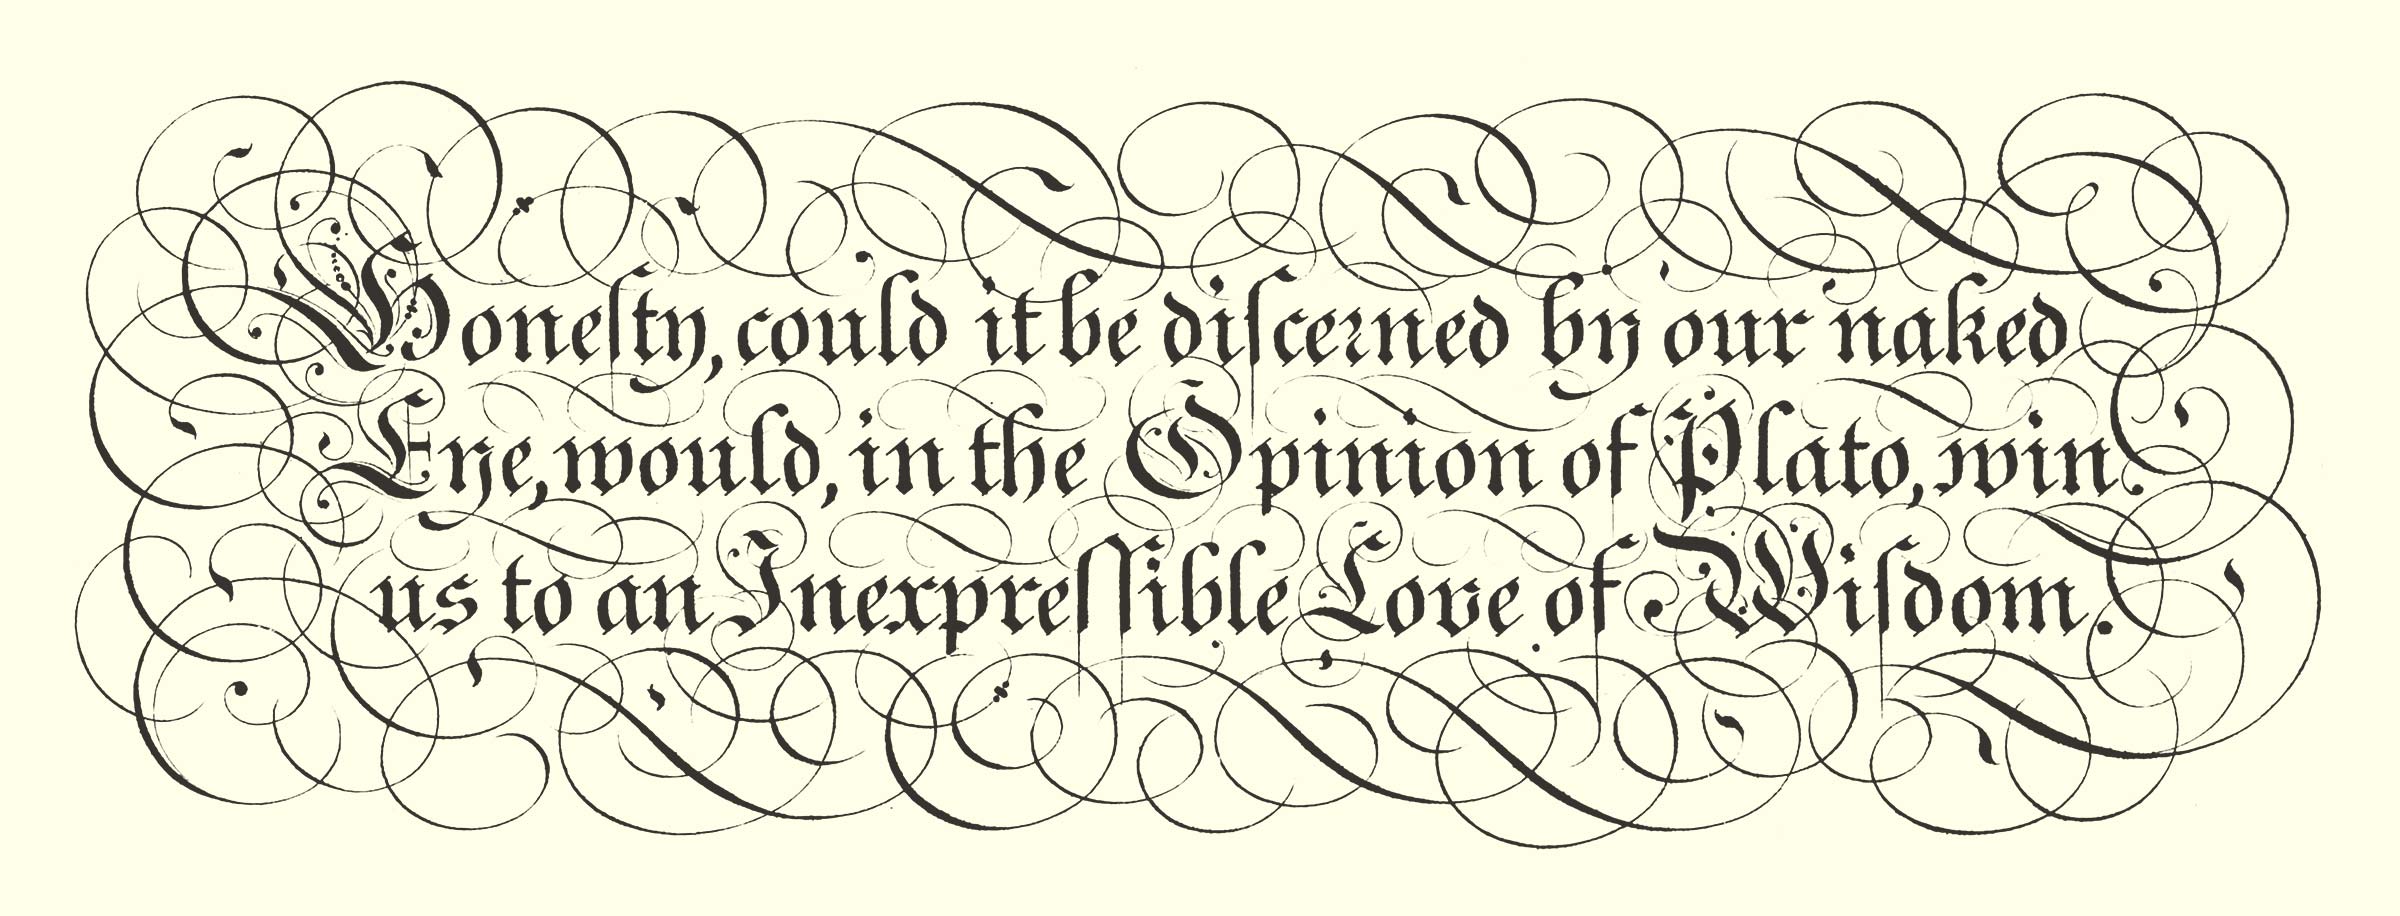 Honeſty, could it be diſcerned by our naked
Eye, would, in the Opinion of Plato, win
us to an Inexpreſſible Love of Wiſdom.